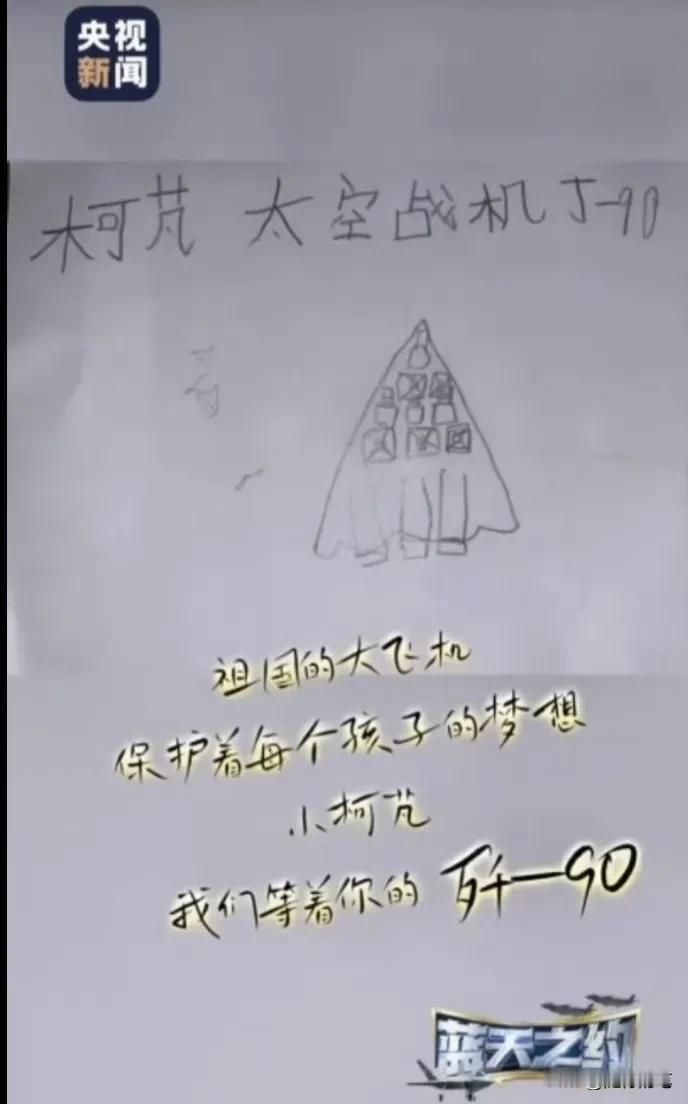 央视
新闻
柯芃 太空战机 J-90
祖国的大飞机
保护着每个孩子的梦想
小柯芃
我们等着你的 歼-90
蓝天之约